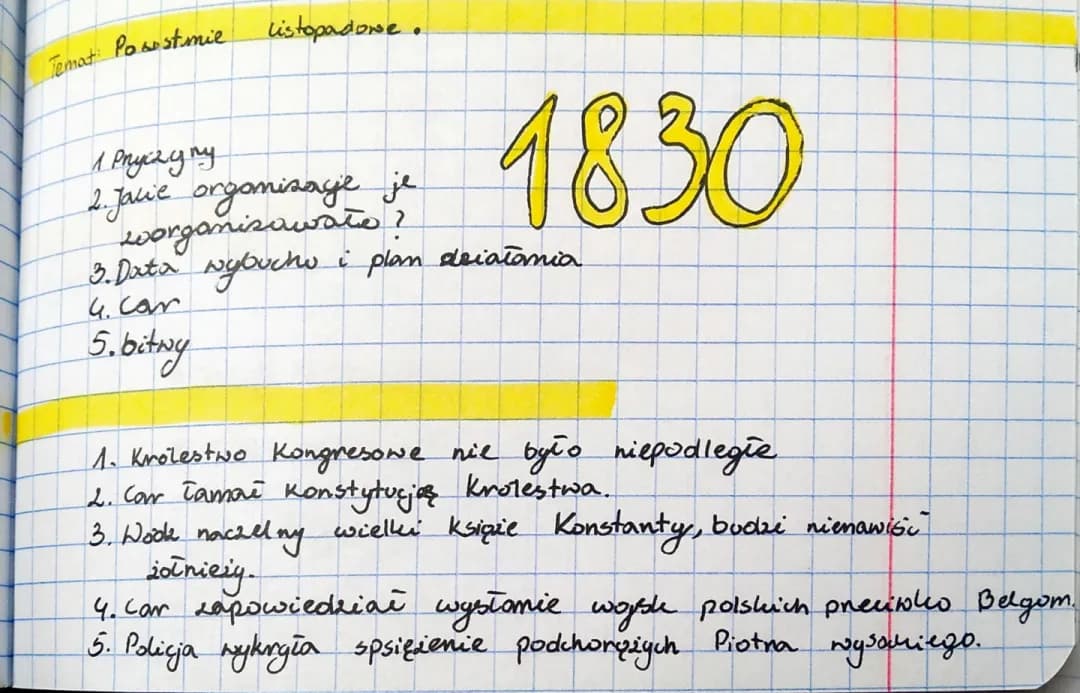 Temat: Powstanie listopadowe.
1830
1 Przyczyny
2. Jakie organizacje je
zoorganizowało?
3. Data wybuchu i plan działania
4. Car
5. bitwy
1. Królestwo Kongresowe nie było niepodległe
2. Car łamał Konstytucję Królestwa.
3. Wódz naczelny wielki książe Konstanty, budzi nienawiść
żołnieży.
4. Car zapowiedział wysłanie wojsk polskich przeciwko Belgom.
5. Policja wykryła spsiężenie podchorążych Piotra wysockiego.